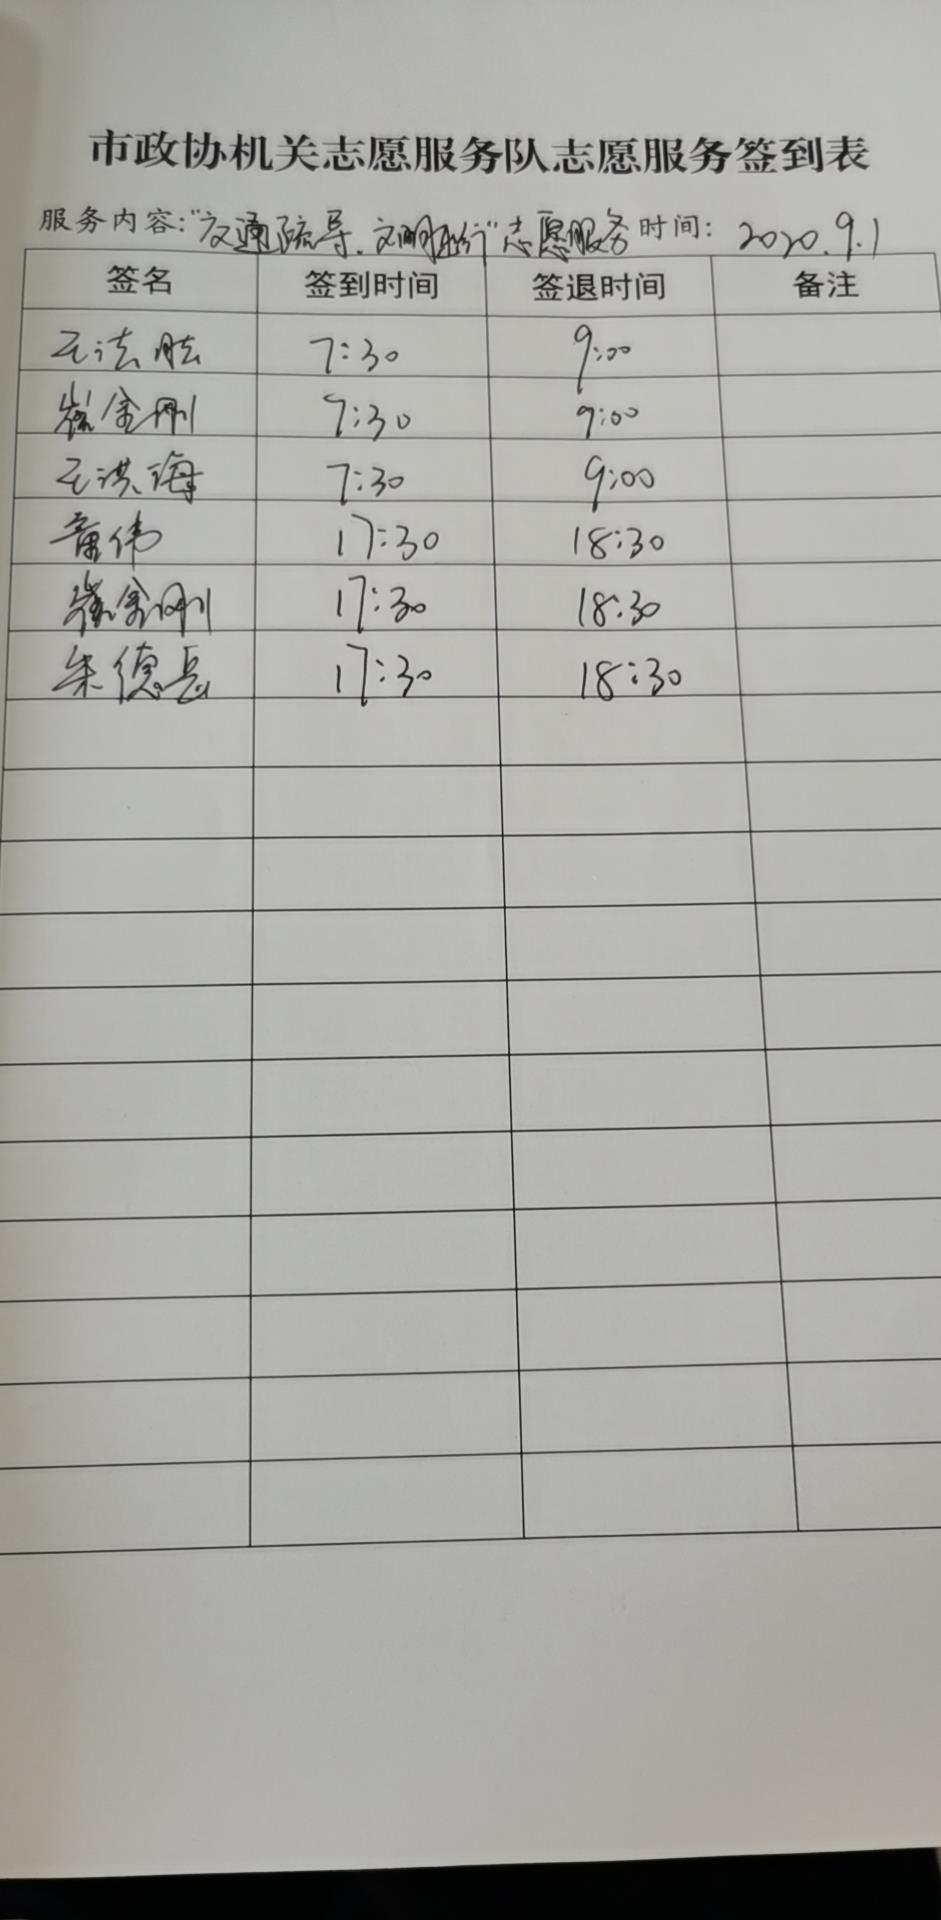 市政协机关志愿服务队志愿服务签到表
服务内容:"交通疏导、文明出行"志愿服务 时间: 2020.9.1
签名 签到时间 签退时间 备注
王法胜 7:30 9:00
崔金刚 7:30 9:00
王洪海 7:30 9:00
董伟 17:30 18:30
崔金刚 17:30 18:30
朱德岳 17:30 18:30